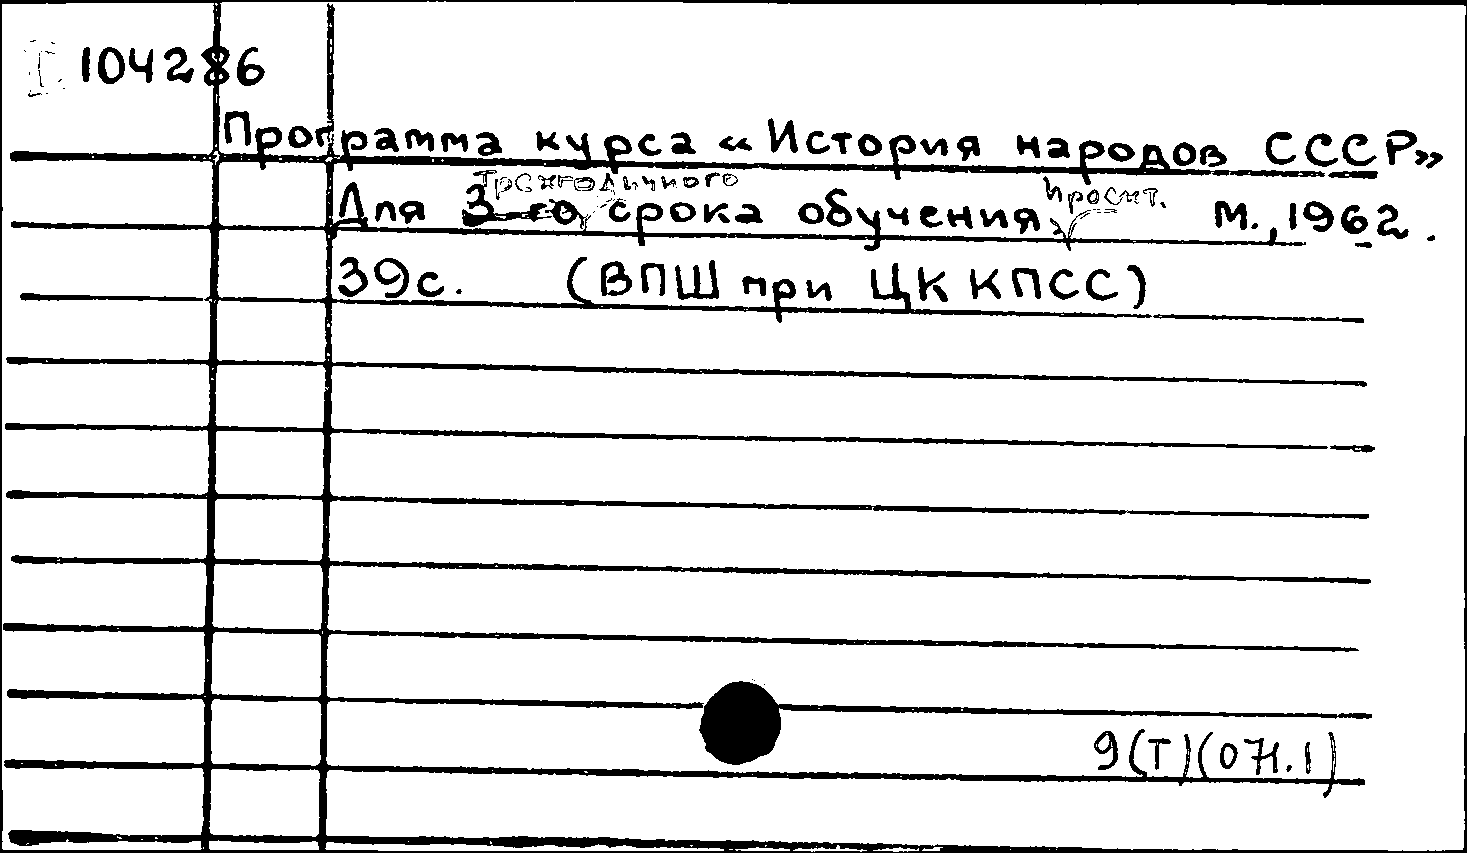 I 104286
Программа курса «История народов СССР»
трехгодичного
Для 3-го срока обучения. М., 1962.
39с. (ВПШ при ЦК ККПСС)
9(Т)(071.1)